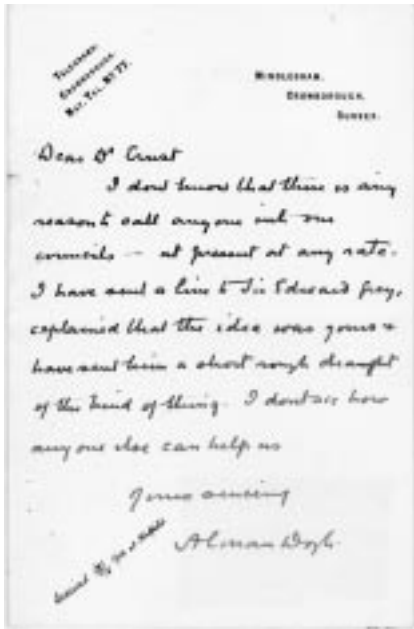 TELEGRAMS:
CROWBOROUGH.
NAT. TEL. Nº 77.
WINDLESHAM,
CROWBOROUGH,
SUSSEX.
Dear Dr Crust
I dont know that there is any
reason to call anyone into our
councils — at present at any rate.
I have sent a line to Sir Edward Grey,
explained that the idea was yours &
have sent him a short rough draught
of the kind of thing. I dont see how
any one else can help us
Yours sincerely
A Conan Doyle